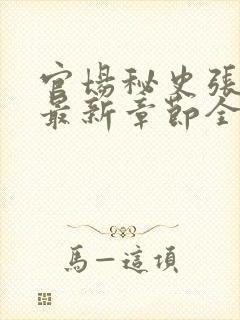 官場秘史張
最新章節全
馬一這項